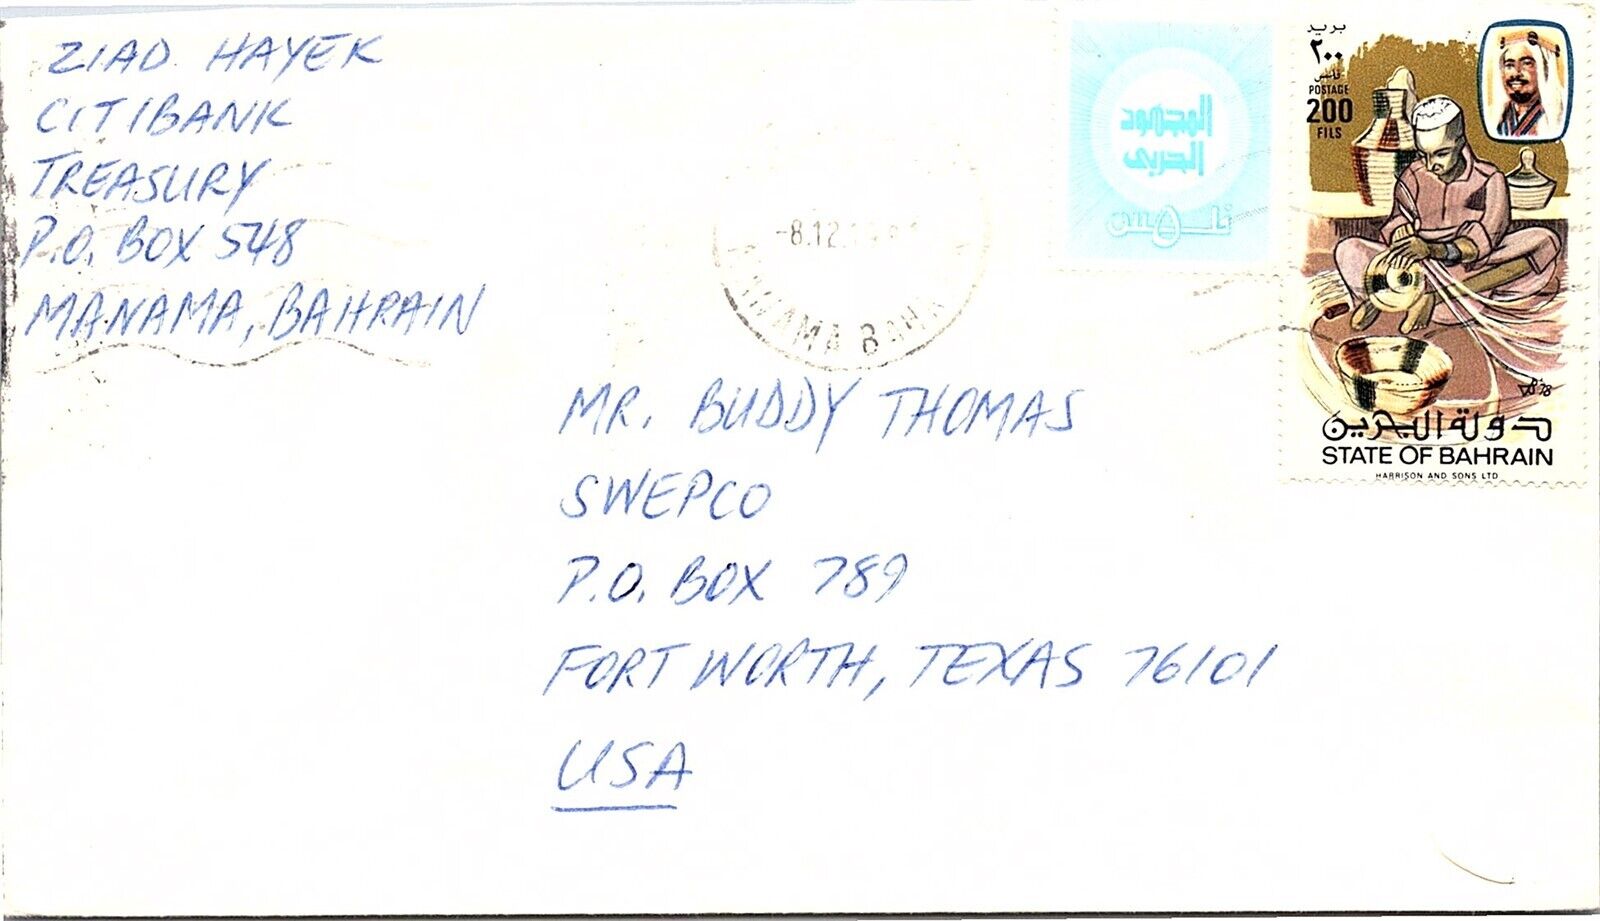 ZIAD HAYEK
CITIBANK
TREASURY
P.O. BOX 548
MANAMA, BAHRAIN
-8.12
MANAMA BAHR
المجهود
الحربي
٥ فلس
بريد
٢٠٠
فلس
POSTAGE
200
FILS
78
دولة البحرين
STATE OF BAHRAIN
HARRISON AND SONS LTD
MR. BUDDY THOMAS
SWEPCO
P.O. BOX 789
FORT WORTH, TEXAS 76101
USA